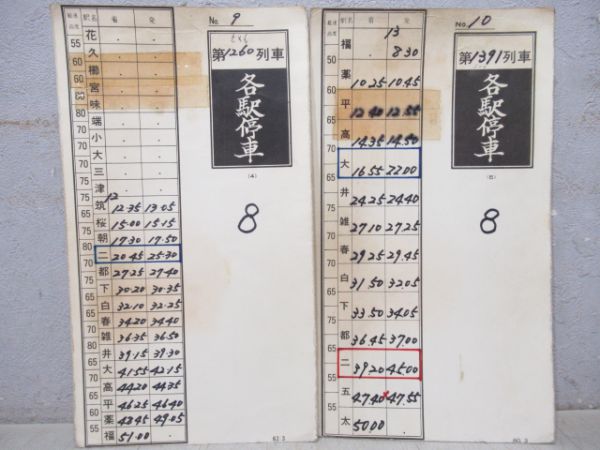 No. 9
第1260列車
各駅停車
(4)
8
最高速度 駅名 着 発
花 . .
55
久 . .
60
櫛 . .
60
宮 . .
80
味 . .
65
端 . .
75
小 . .
70
大 . .
75
三 . .
75
津 . .
75 12
筑 12.35 13.05
75
桜 15.00 15.15
朝 17.30 17.50
80
二 20.45 25.30
70
都 27.25 27.40
65
下 30.20 30.35
白 32.10 32.25
65
春 34.20 34.40
65
雑 36.35 36.50
65
井 39.15 39.30
大 41.55 42.15
65
高 44.20 44.35
65
平 46.25 46.40
薬 48.45 49.05
65
福 51.00 .
No. 10
第1391列車
各駅停車
8
最高速度 駅名 着 発
13
福 . 8.30
50
薬 10.25 10.45
平 12.40 12.55
70
高 14.35 14.50
大 16.55 22.00
井 24.25 24.40
65
雑 27.10 27.25
65
春 29.25 29.45
65
白 31.50 32.05
下 33.50 34.05
65
都 36.45 37.00
65
二 39.20 45.00
55
五 47.40 47.55
65
太 50.00